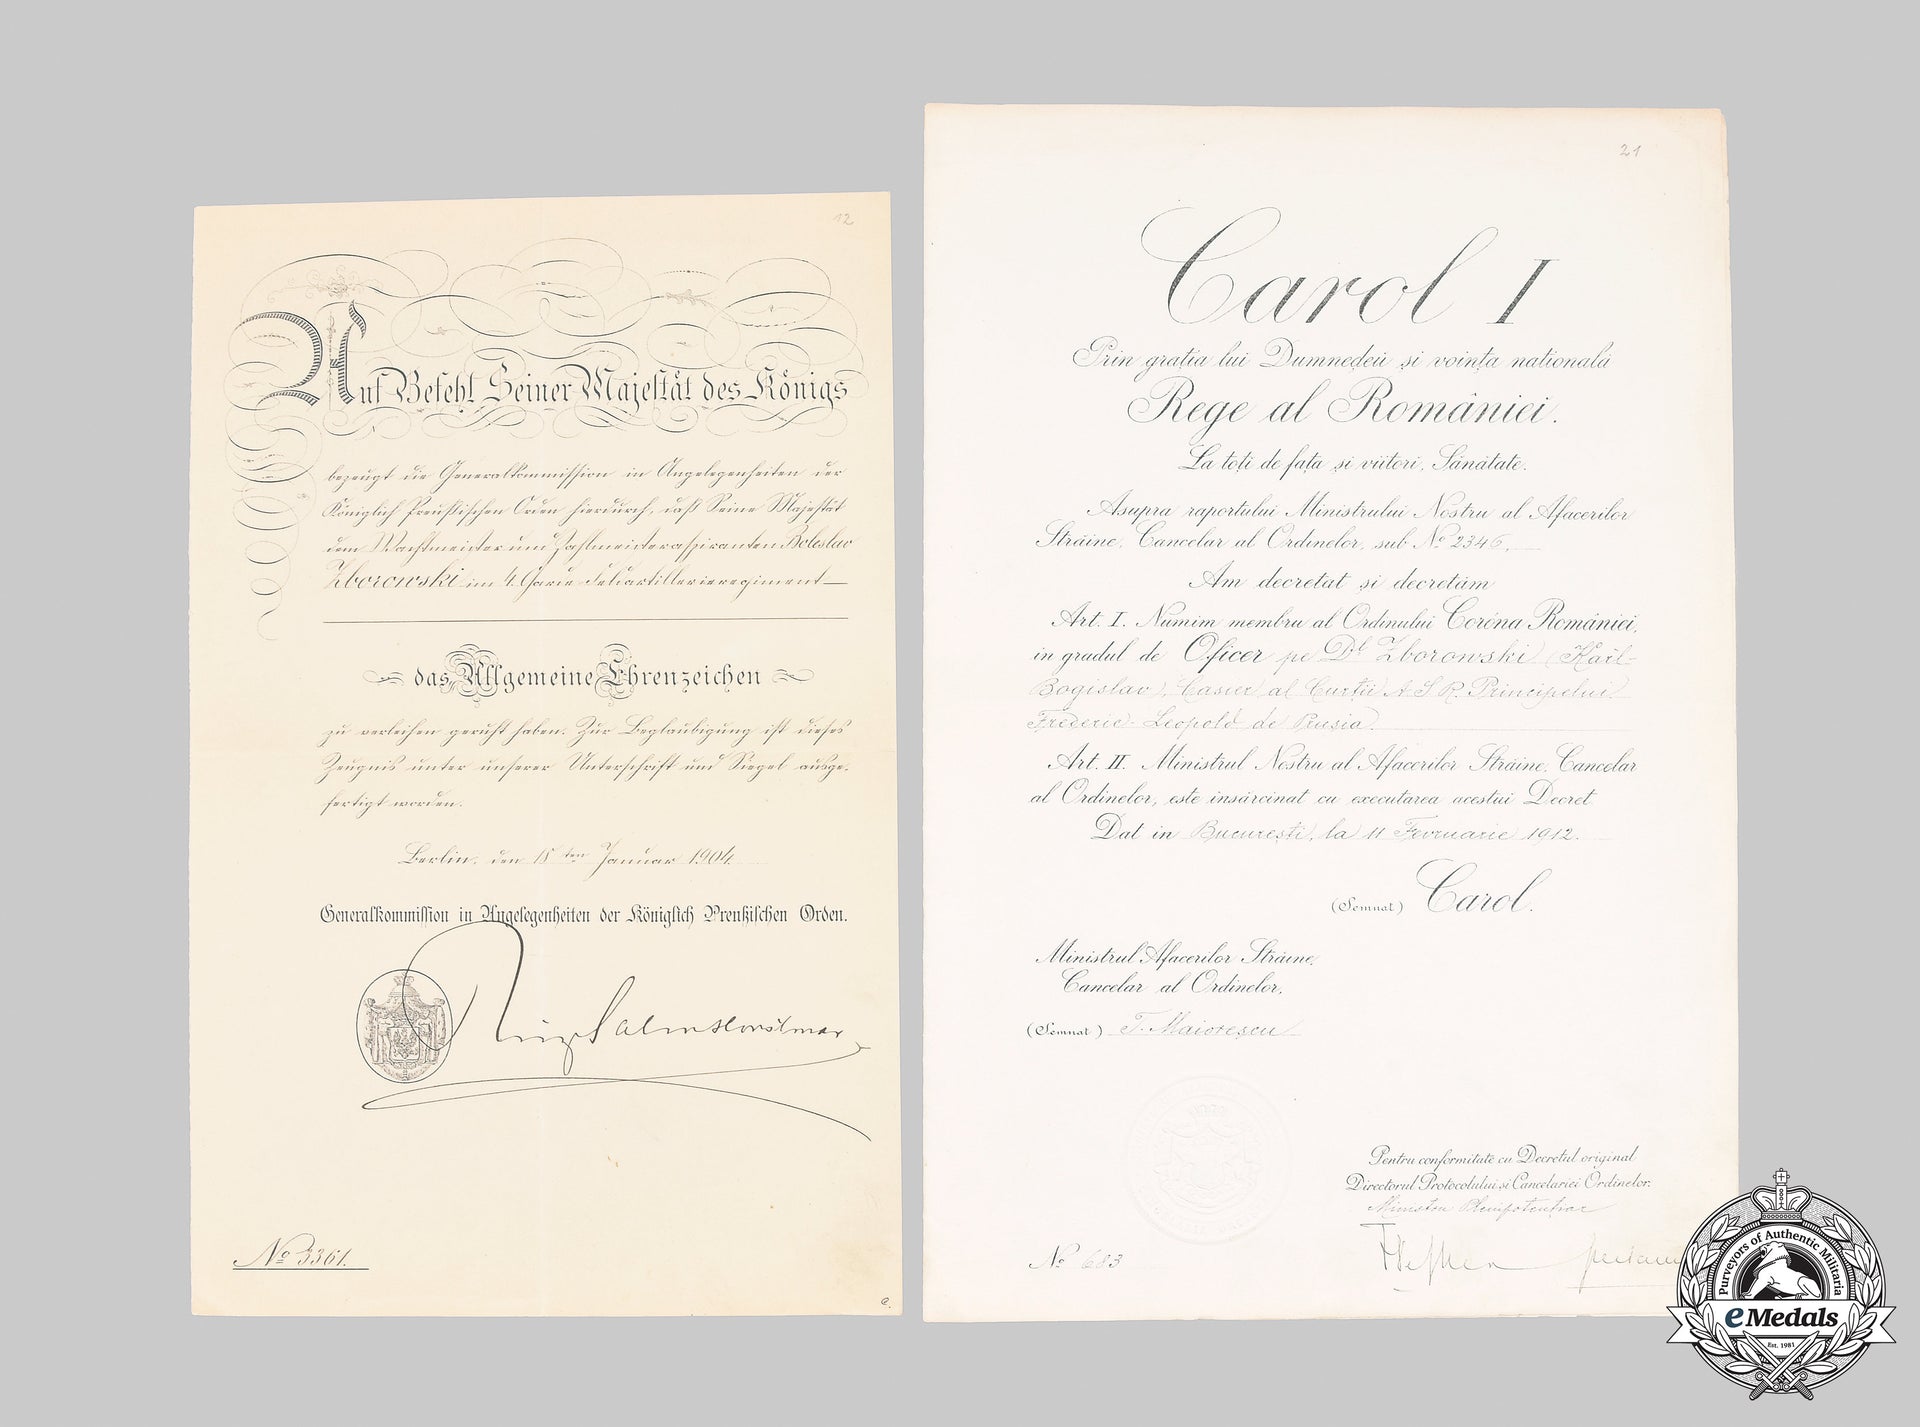 12
Auf Befehl Seiner Majestät des Königs
bezeugt die Generalkommission in Angelegenheiten der
Königlich Preußischen Orden hierdurch, daß Seine Majestät
dem Wachtmeister und Zahlmeisteraspiranten Boleslav
Zborowski im 4. Garde-Feldartillerieregiment
das Allgemeine Ehrenzeichen
zu verleihen geruht haben. Zur Beglaubigung ist dieses
Zeugnis unter unserer Unterschrift und Siegel ausge-
fertigt worden.
Berlin, den 18ten Januar 1904.
Generalkommission in Angelegenheiten der Königlich Preußischen Orden.
No 3361.
21
Carol I
Prin grația lui Dumnedeu și voința natională
Rege al României.
La toți de fața și viitori, Sănătate.
Asupra raportului Ministrului Nostru al Afacerilor
Străine, Cancelar al Ordinelor, sub No 2346,
Am decretat și decretăm
Art. I. Numim membru al Ordinului Coróna României,
in gradul de Oficer pe Dl Zborowski (Karl-
Bogislav), Casier al Curții A.S.R. Principelui
Frederic-Leopold de Prusia.
Art. II. Ministrul Nostru al Afacerilor Străine, Cancelar
al Ordinelor, este insărcinat cu executarea acestui Decret.
Dat in București, la 11 Fevruarie 1912.
(Semnat) Carol.
Ministrul Afacerilor Străine,
Cancelar al Ordinelor,
(Semnat) T. Maiorescu
Pentru conformitate cu Decretul original
Directorul Protocolului și Cancelariei Ordinelor:
Ministru Plenipotențiar
No 683
Purveyors of Authentic Militaria
eMedals
Est. 1981